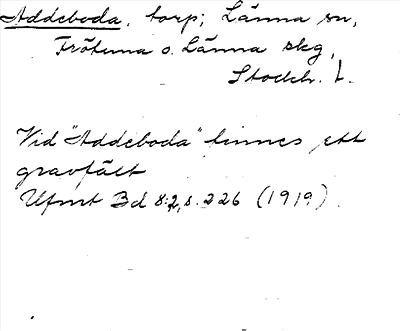 Addeboda, torp; Länna sn,
Frötuna o. Länna skg,
Stockh. L.
Vid "Addeboda" finnes ett
gravfält
Ufmt Bd 8:2, s. 226 (1919)